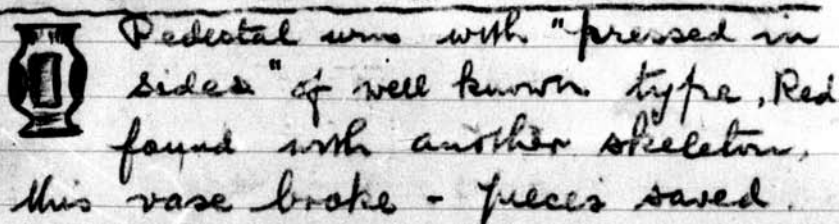 Pedestal urn with "pressed in
sides" of well known type, Red
found with another skeleton,
this vase broke - pieces saved.